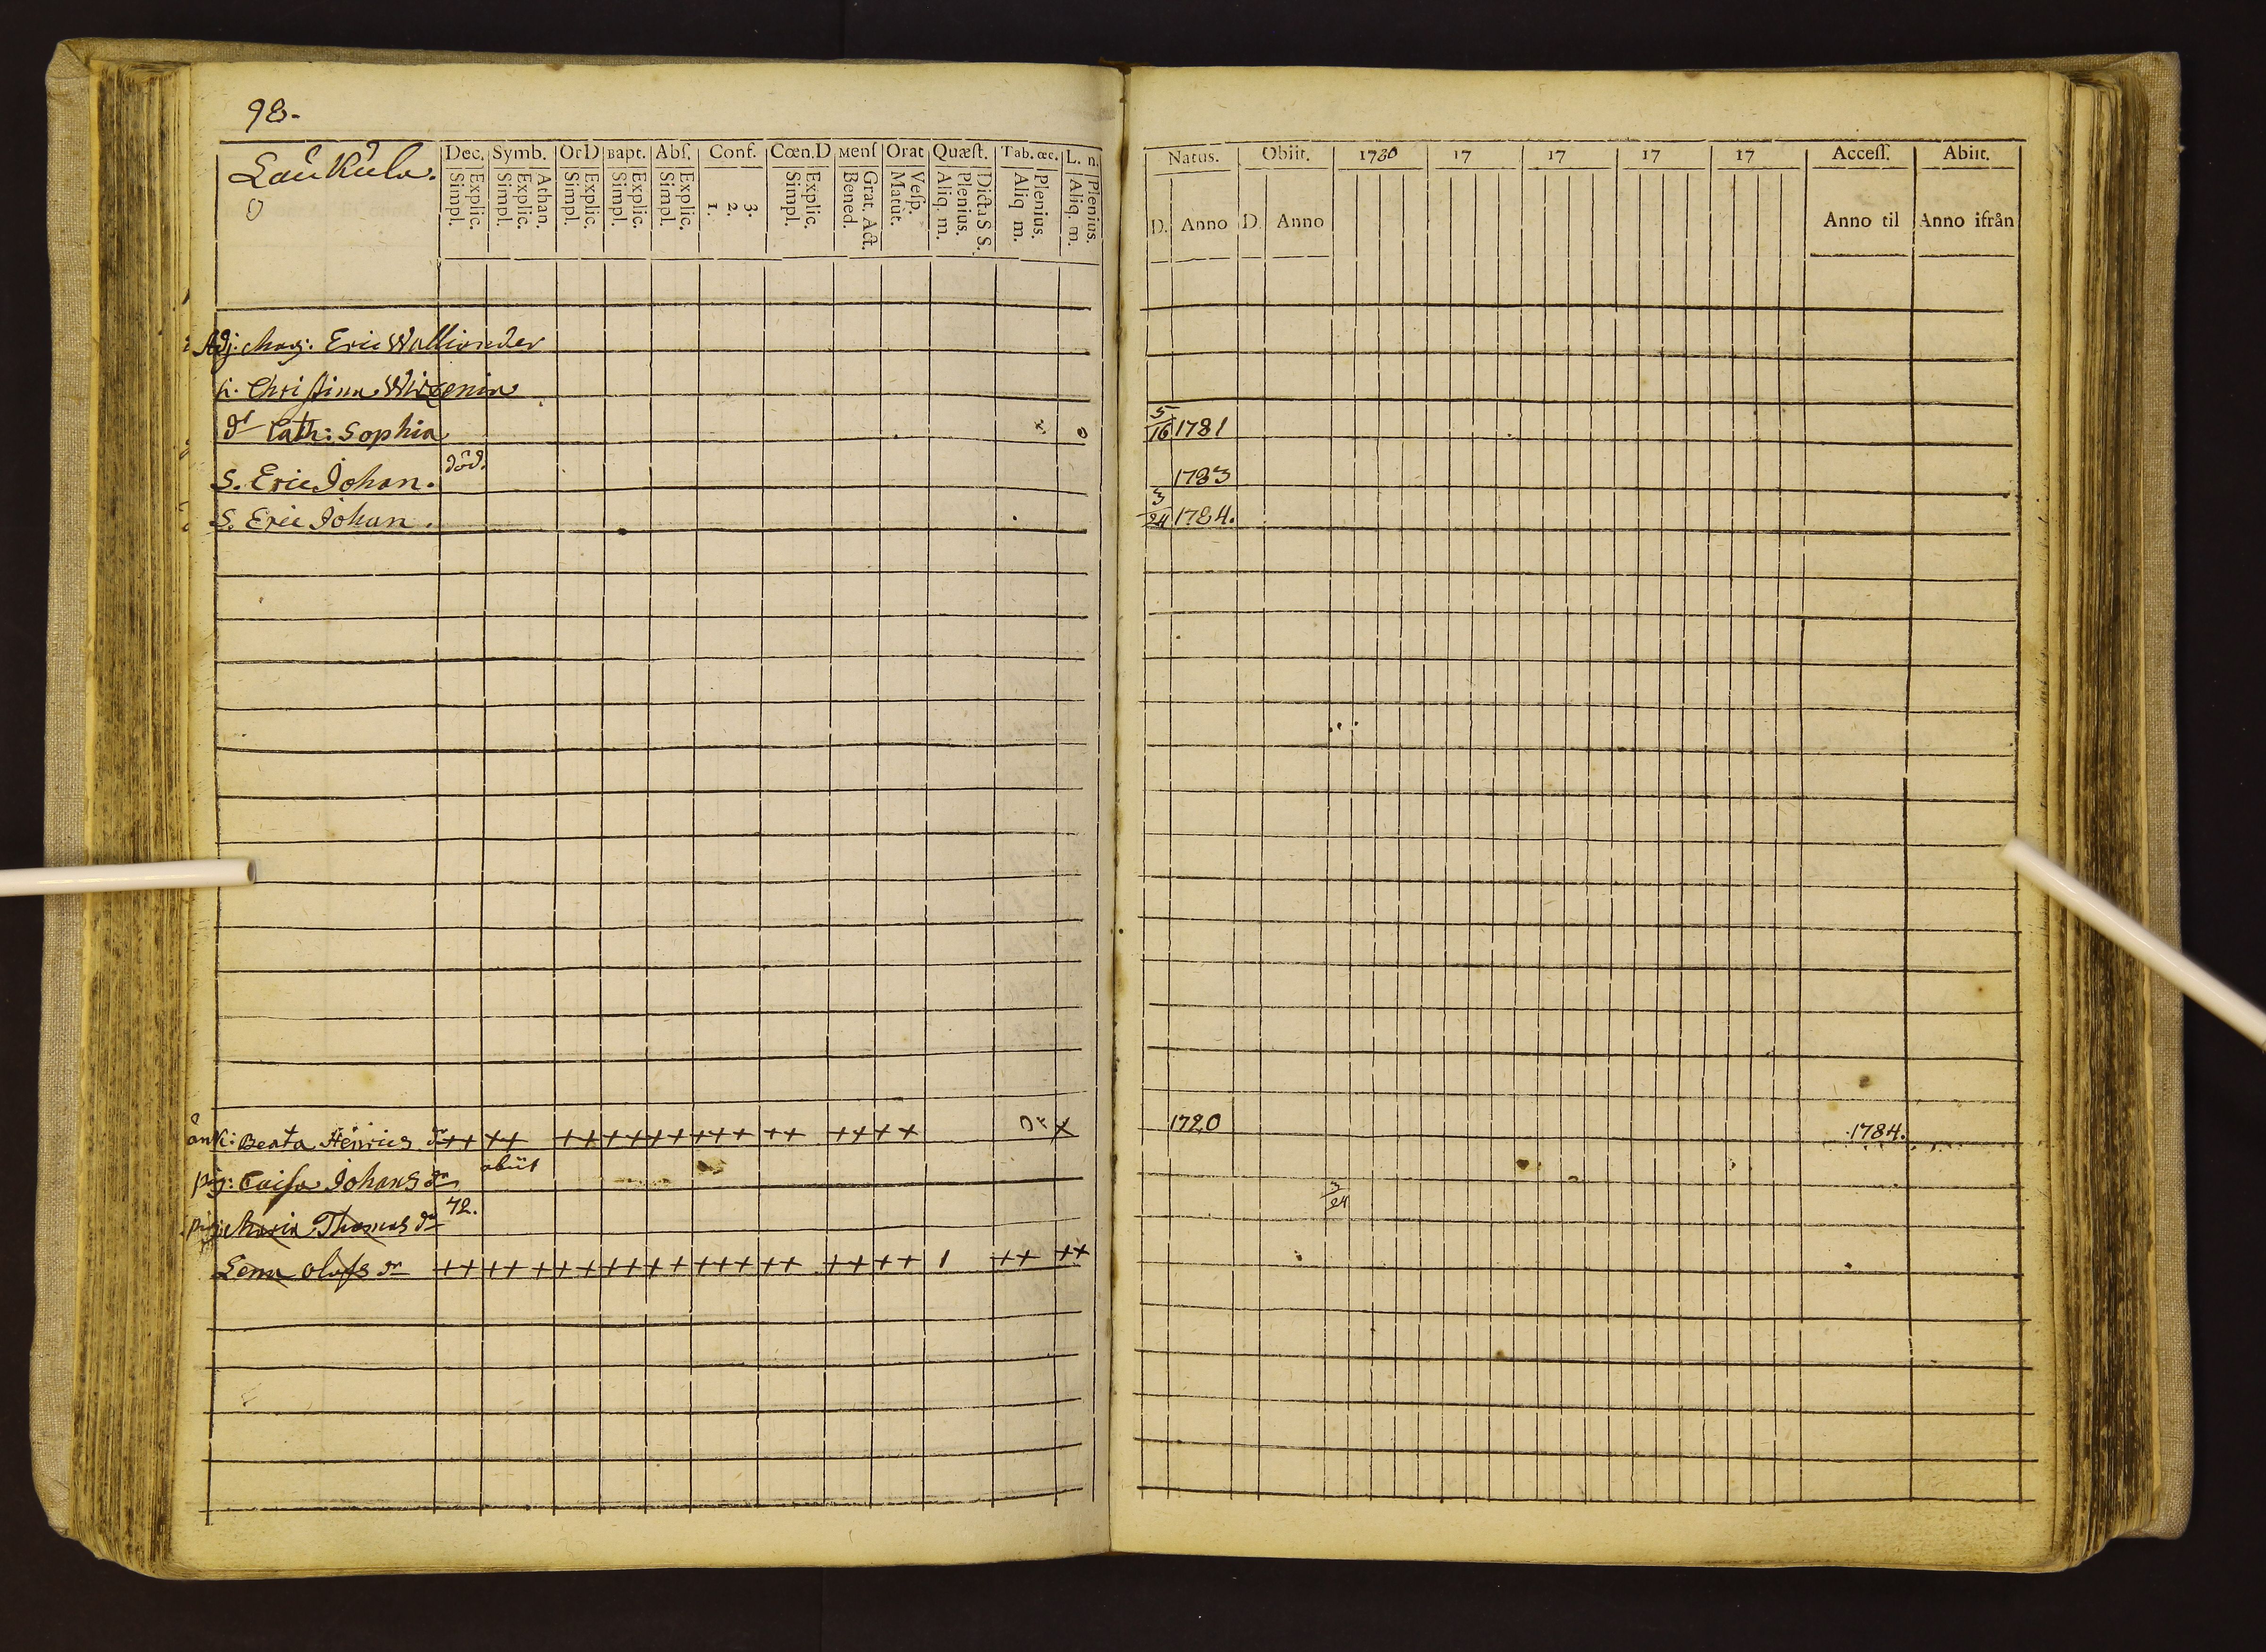 98.
Laukula.
0
Dec. Symb. Or D Bapt. Abſ. Conf. Cœn.D Menſ Orat Quæſt. Tab. œc. L. n.
Simpl. Explic. Simpl. Explic. Athan. Simpl. Explic. Simpl. Explic. Simpl. Explic. 1. 2. 3. Simpl. Explic. Bened. Grat. Act. Matut. Veſp. Aliq. m. Plenius. Dicta S S. Aliq m. Plenius. Aliq. m. Plenius.
Natus. Obiit. 1780 17 17 17 17 Acceſſ. Abiit.
D. Anno D. Anno Anno til Anno ifrån
Adj: Mag: Eric Wallionder
h: Christina Wirzenia
dr Cath: Sophia 5/16 1781
död.
S. Eric Johan. 1783
S. Eric Johan. 3/24 1784.
änk: Beata Henrics dr ++ ++ ++ ++ ++ +++ ++ ++ ++ + 1720 1784.
abiit
pig: Caisa Johans dr 3/24
72.
pig: Maria Thomas dr
Lena Olofs dr ++ ++ + ++ ++ ++ +++ ++ ++ ++ 1 ++ ++